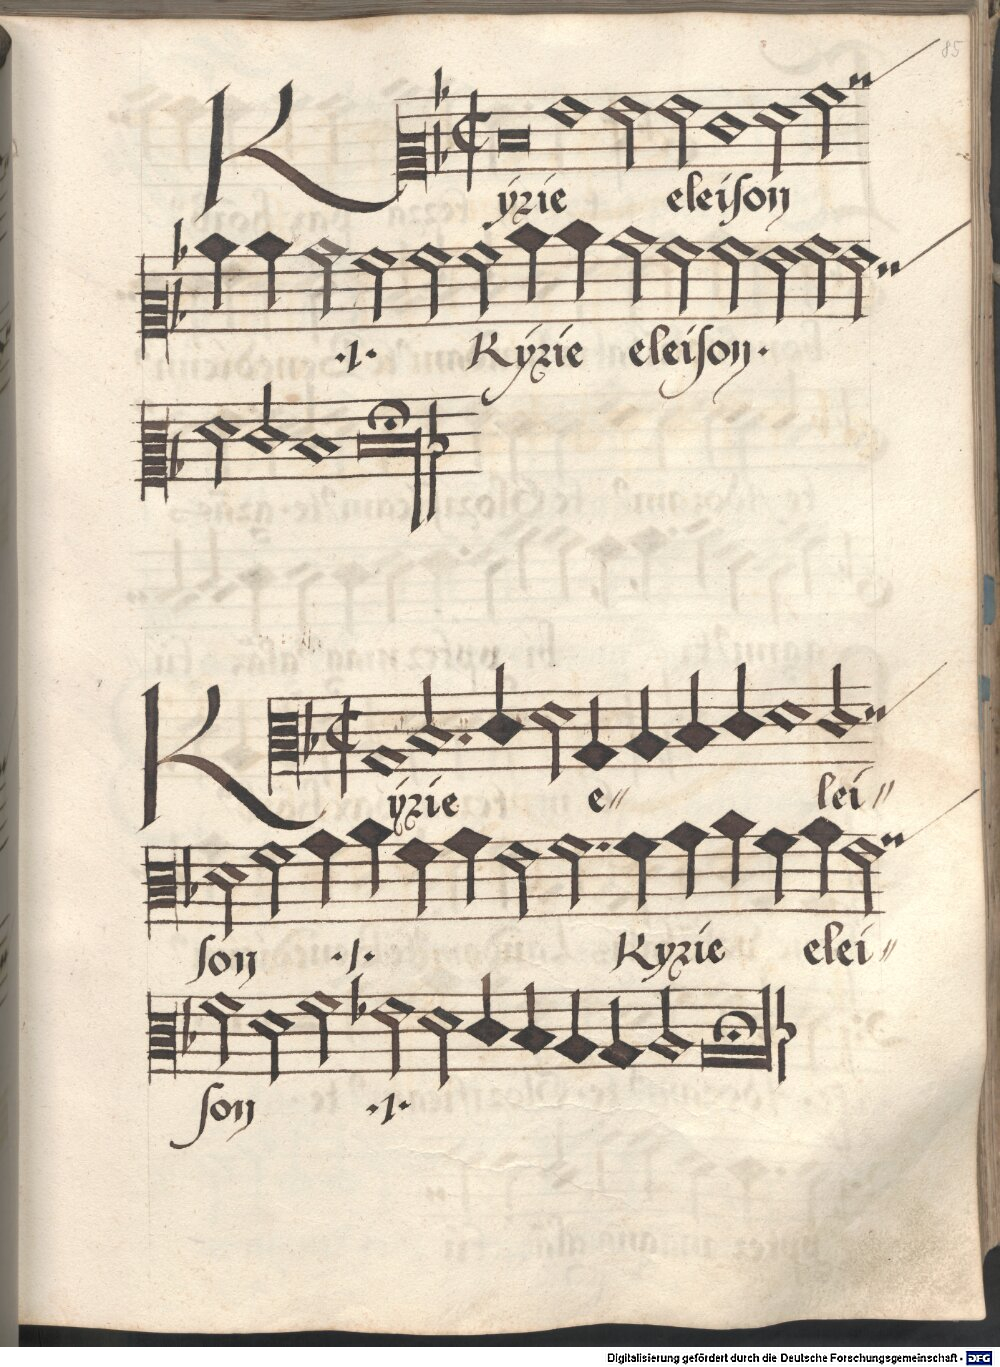 85
Kÿrie eleison
·1· Kÿrie eleison·
Kÿrie e〃 lei〃
son ·1· Kyrie elei〃
son ·1·
Digitalisierung gefördert durch die Deutsche Forschungsgemeinschaft - DFG